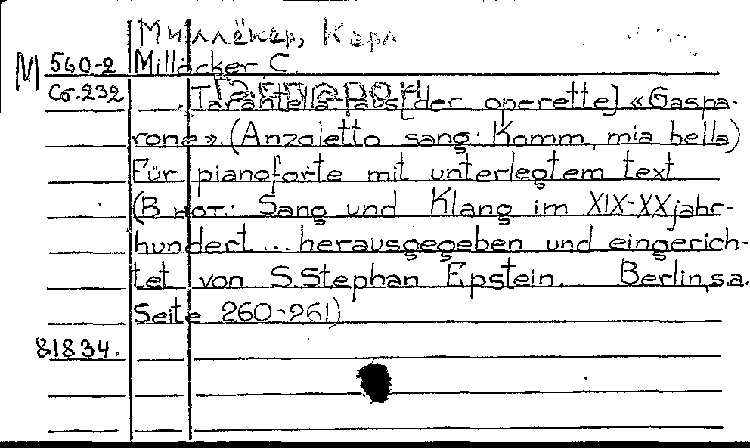 Миллёкер, Карл
М 560-2 Millöcker C.
Сб.232 Tarantella aus [der operette] «Gaspa-
rone» (Anzoletto sang: Komm, mia bella)
Für pianoforte mit unterlegtem text
(В нот.: Sang und Klang im XIX-XX jahr-
hundert... herausgegeben und eingerich-
tet von S. Stephan Epstein. Berlin, s.a.
Seite 260-261)
81834.